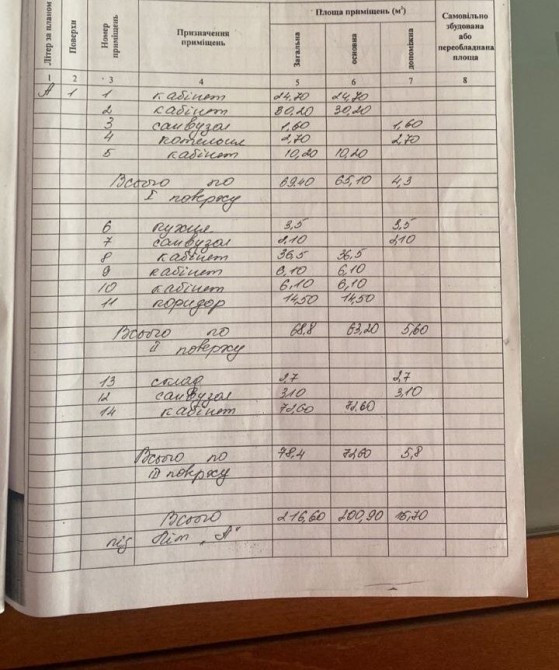 Літер за планом | Поверхи | Номер приміщень | Призначення приміщень | Площа приміщень (м²) | Самовільно збудована або переобладнана площа
Загальна | основна | допоміжна
1 | 2 | 3 | 4 | 5 | 6 | 7 | 8
А | 1 | 1 | кабінет | 24,70 | 24,70
2 | кабінет | 30,20 | 30,20
3 | санвузол | 1,60 | 1,60
4 | котельня | 2,70 | 2,70
5 | кабінет | 10,20 | 10,20
Всього по | 69,40 | 65,10 | 4,3
І поверху
6 | кухня | 3,5 | 3,5
7 | санвузол | 2,10 | 2,10
8 | кабінет | 36,5 | 36,5
9 | кабінет | 6,10 | 6,10
10 | кабінет | 6,10 | 6,10
11 | коридор | 14,50 | 14,50
Всього по | 68,8 | 63,20 | 5,60
ІІ поверху
13 | склад | 2,7 | 2,7
12 | санвузол | 3,10 | 3,10
14 | кабінет | 72,60 | 72,60
Всього по | 78,4 | 72,60 | 5,8
ІІІ поверху
Всього | 216,60 | 200,90 | 15,70
під Літ „А"